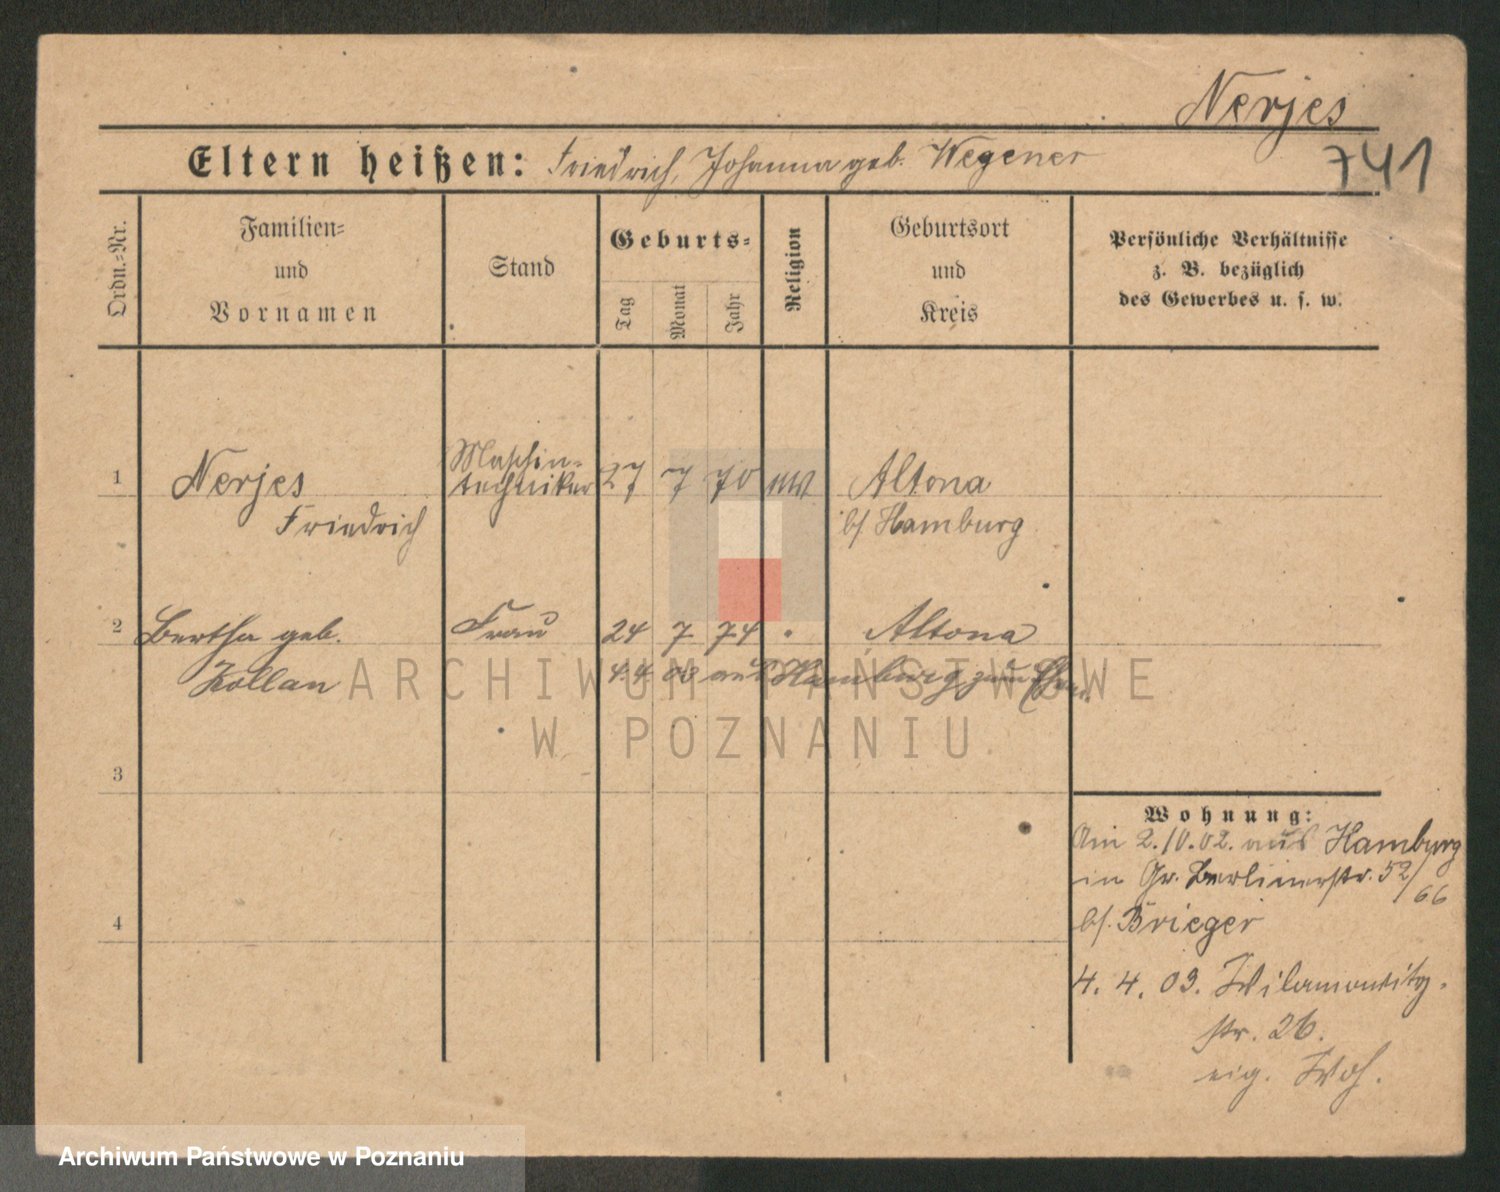 Nerjes
741
Eltern heißen: Friedrich, Johanna geb. Wegener
Ordn.-Nr.
Familien-
und
Vornamen
Stand
Geburts-
Tag
Monat
Jahr
Religion
Geburtsort
und
Kreis
Persönliche Verhältnisse
z. B. bezüglich
des Gewerbes u. s. w.
1
Nerjes
Friedrich
Maschin-
techniker
27 7 70
Altona
b/ Hamburg
2
Bertha geb.
Kollan
Frau
24 7 74
Altona
4.4.03 aus Hamburg zum
3
4
Wohnung:
Am 2.10.02. aus Hamburg
in Gr. Berlinerstr. 52/
66
b/. Brieger
4. 4. 03. Wilamowitz-
str. 26.
eig. Woh.
ARCHIWUM PAŃSTWOWE
W POZNANIU
Archiwum Państwowe w Poznaniu